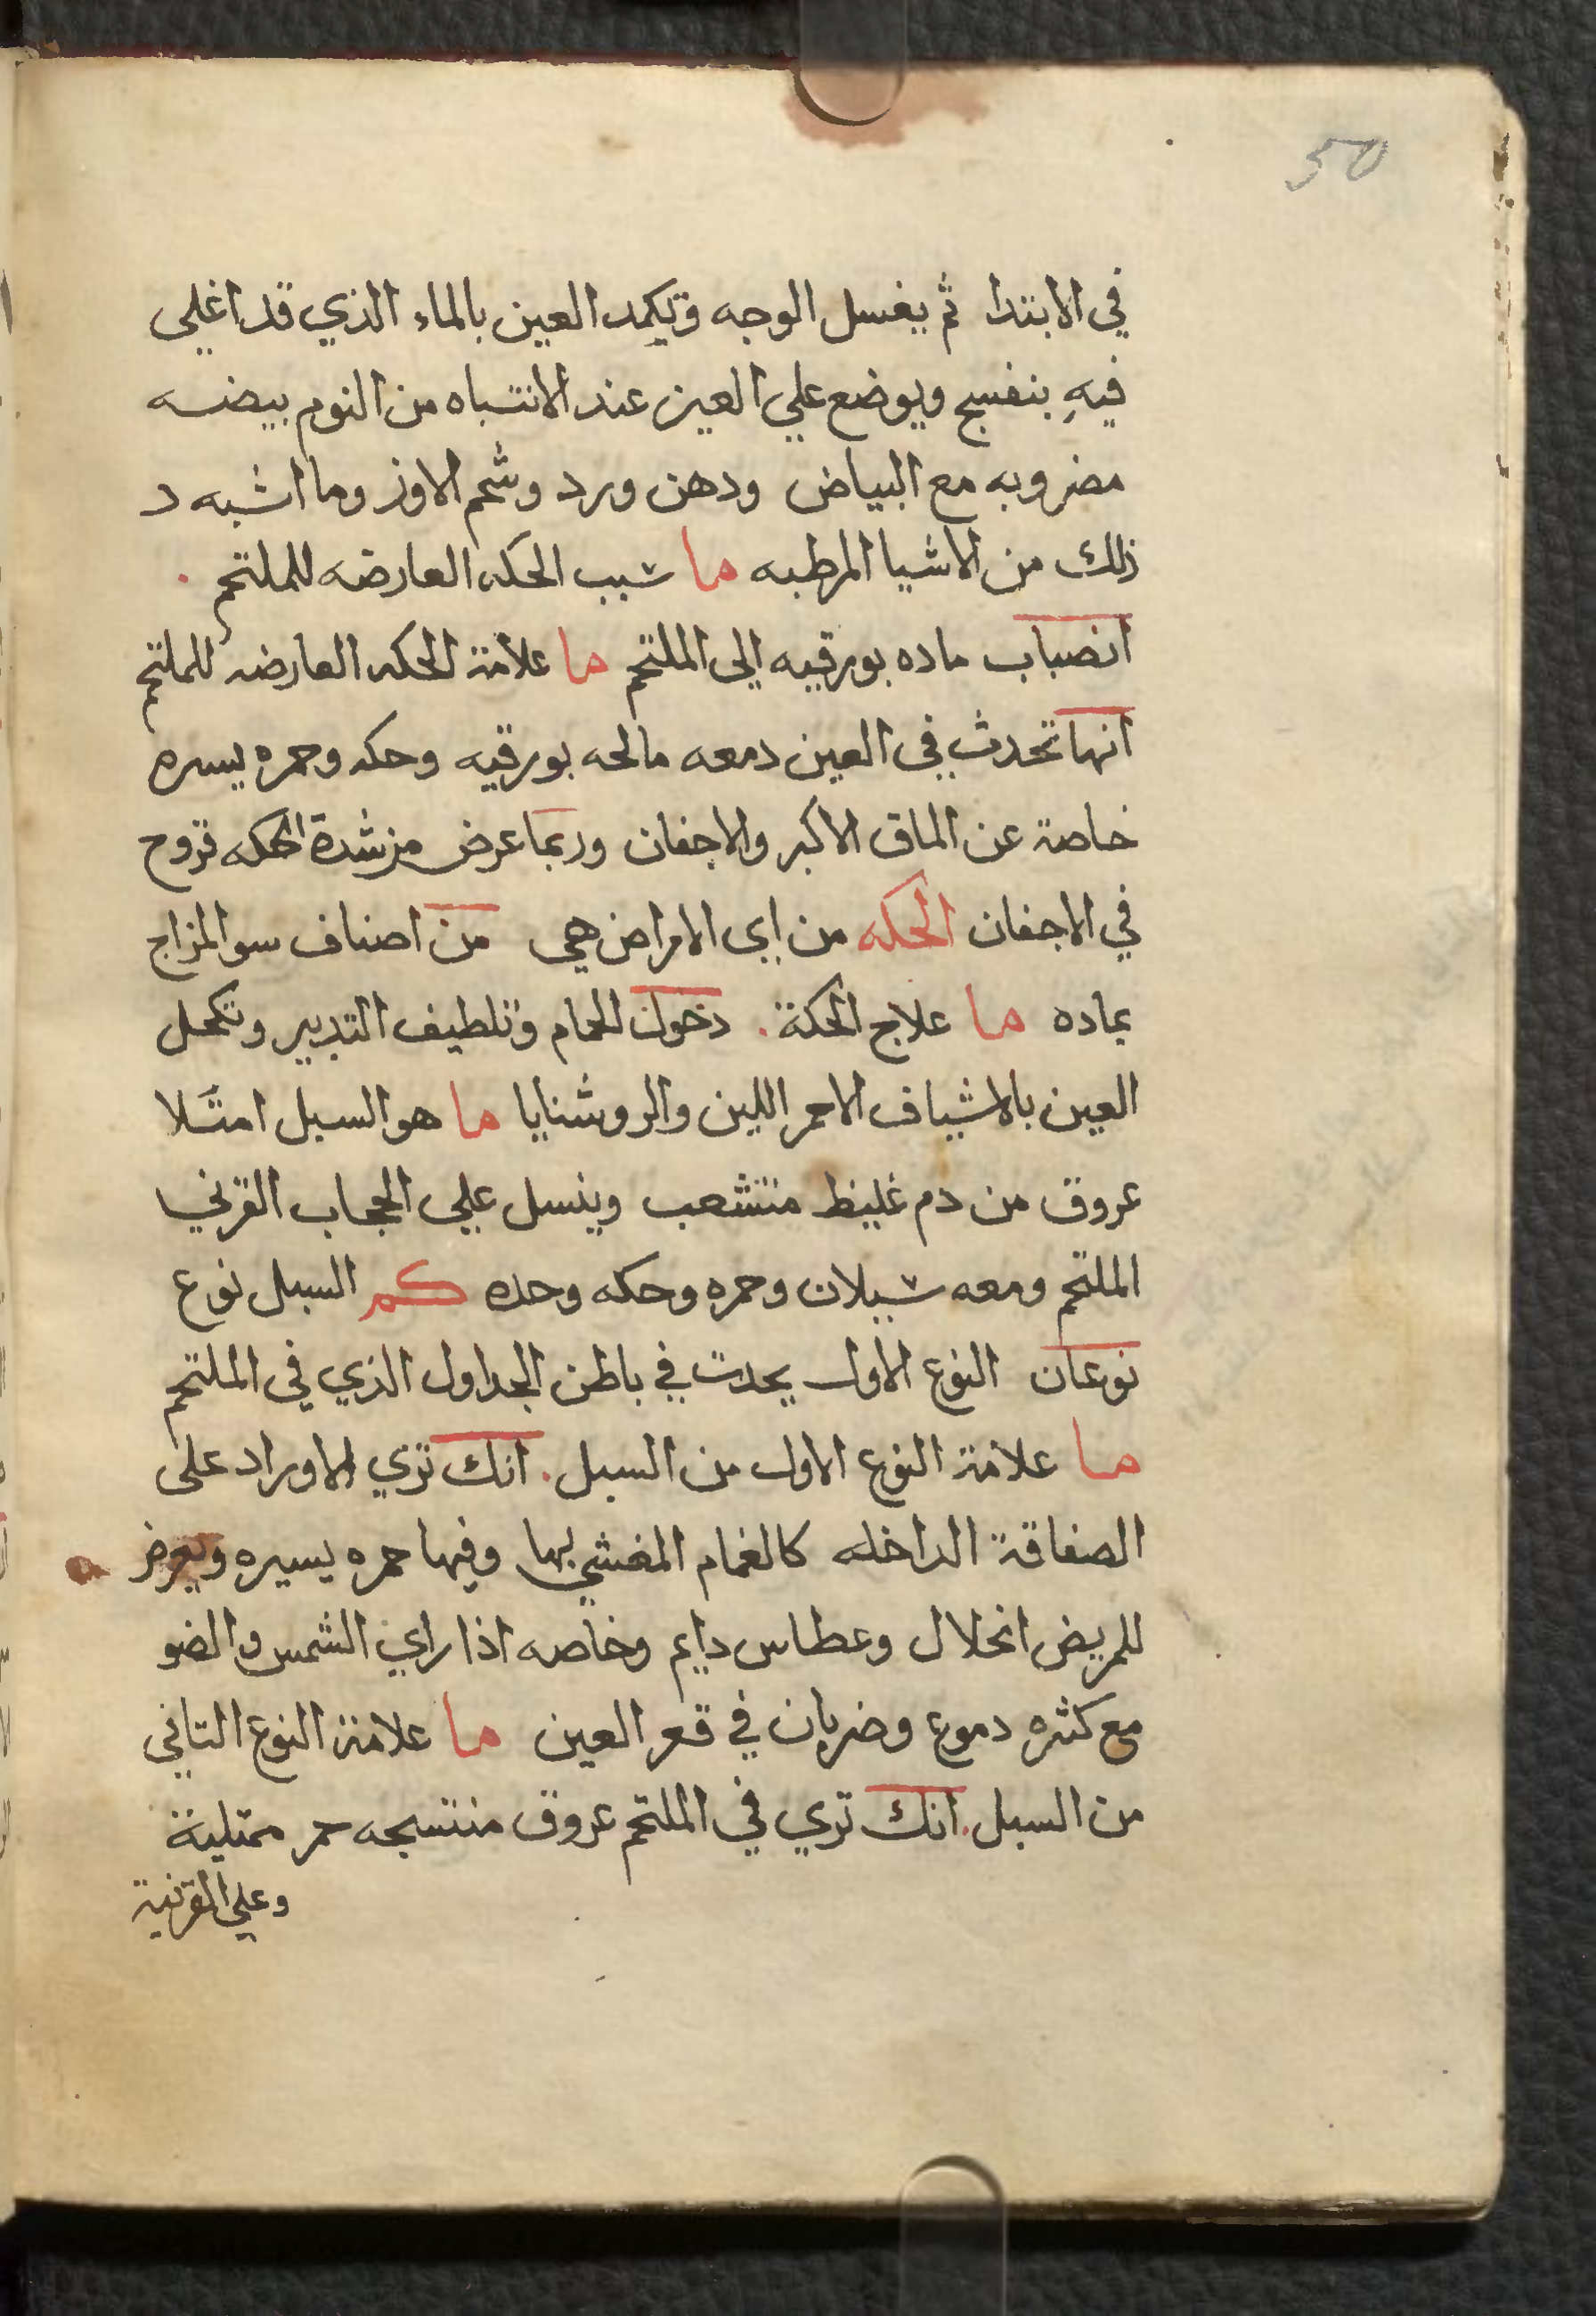 50
في الابتدا ثم يغسل الوجه وتكمد العين بالماء الذي قد اغلي
فيه بنفسج ويوضع علي العين عند الانتباه من النوم بيضه
مضروبه مع البياض ودهن ورد وشحم الاوز وما اشبه د
ذلك من الاشيا المرطبه ما سبب الحكه العارضه للملتحم .
انصباب ماده بورقيه الى الملتحم ما علامة الحكه العارضه للملتحم
انها تحدث في العين دمعه مالحه بورقيه وحكه وحمره يسره
خاصة عن الماق الاكبر والاجفان وربما عرض من شدة الحكه قروح
في الاجفان الحكه من اي الامراض هي من اصناف سو المزاج
بماده ما علاج الحكة . دخول الحمام وتلطيف التدبير وتكحل
العين بالاشياف الاحمر اللين والروشنايا ما هو السبل امتلا
عروق من دم غليظ منتشعب وينسل علي الحجاب القرني
الملتحم ومعه سيلان وحمره وحكه وحده كم السبل نوع
نوعان النوع الاول يحدث في باطن الجداول الذي في الملتحم
ما علامة النوع الاول من السبل . انك تري الاوراد على
الصفاقة الداخله كالغمام المغشي لها وفيها حمره يسيره ويعرض
للمريض انحلال وعطاس دايم وخاصه اذا راي الشمس والضو
مع كثره دموع وضربان في قعر العين ما علامة النوع التاني
من السبل . انك تري في الملتحم عروق منتسجه حمر ممتلية
وعلي القرنية